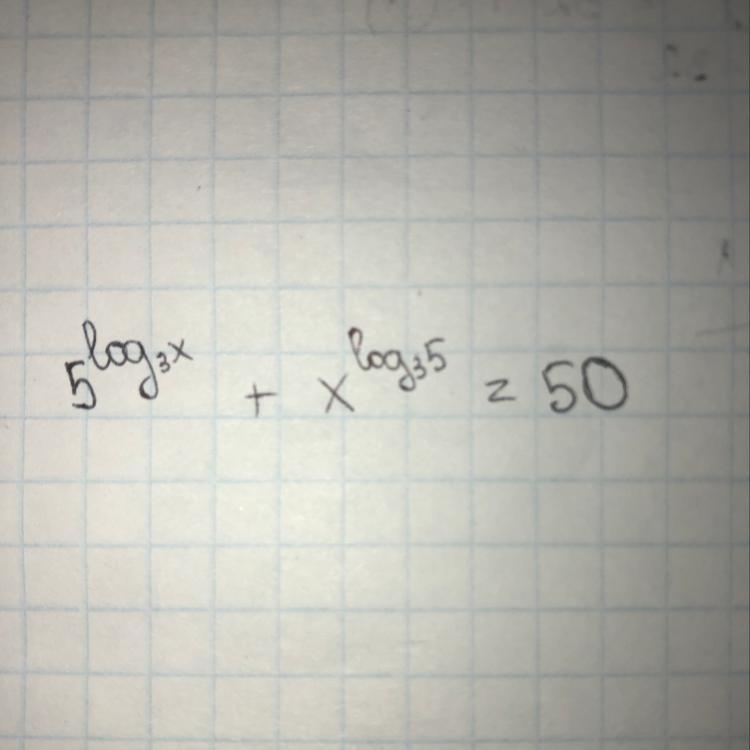 5^{log_3 x} + x^{log_3 5} = 50